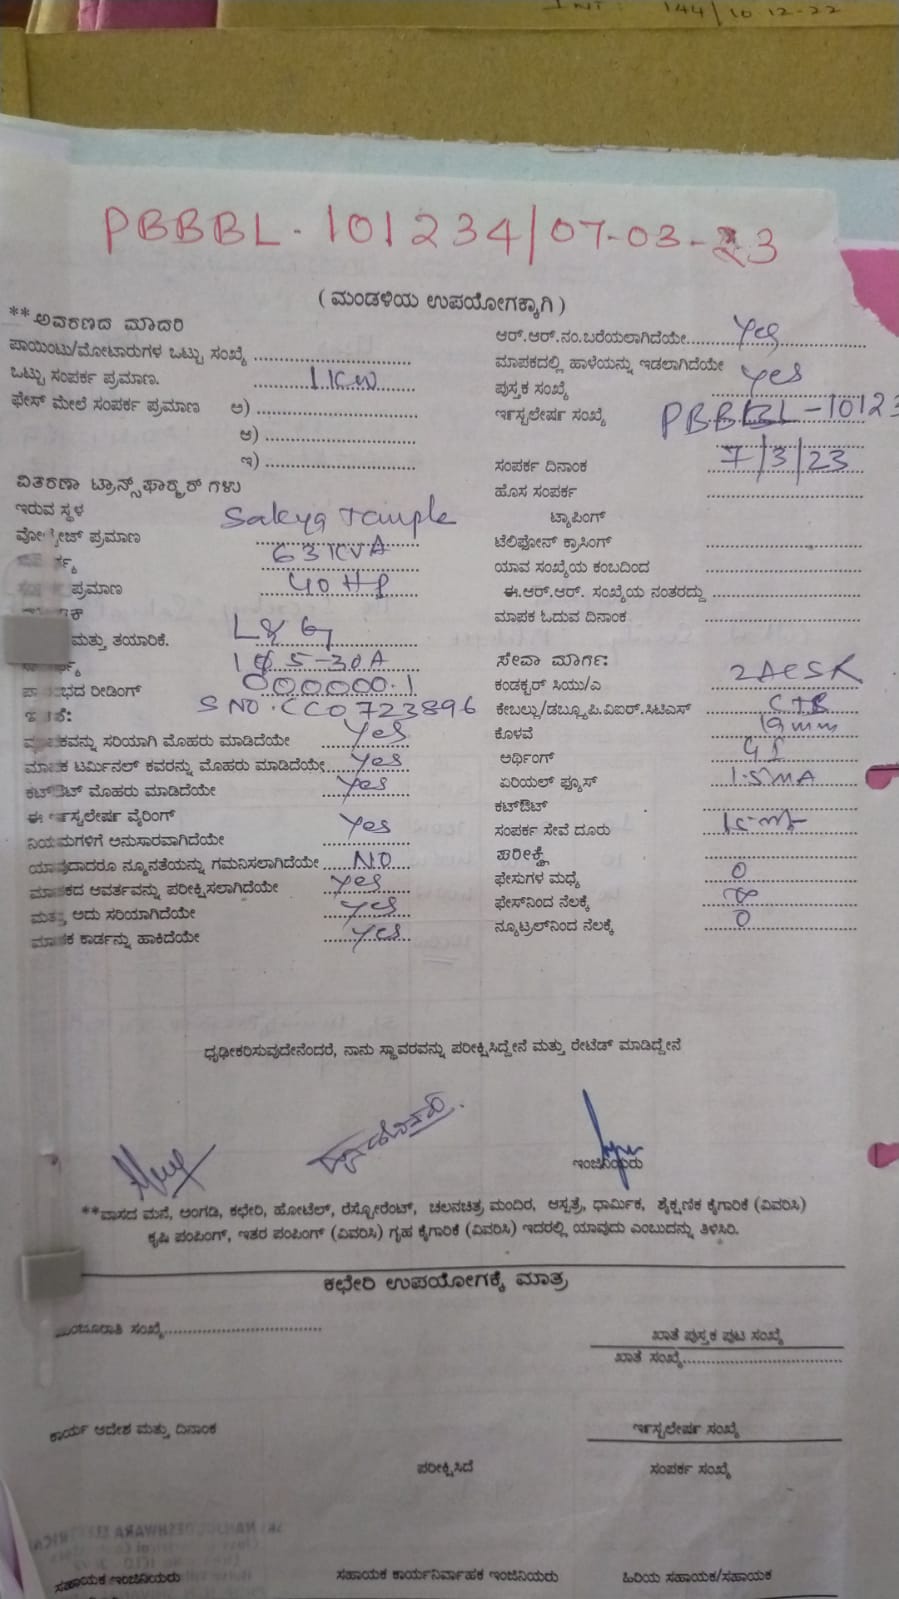 INT: 144/10-12-22
PBBBL-101234/07-03-23
(ಮಂಡಳಿಯ ಉಪಯೋಗಕ್ಕಾಗಿ)
**ಆವರಣದ ಮಾದರಿ
ಪಾಯಿಂಟು/ಮೋಟಾರುಗಳ ಒಟ್ಟು ಸಂಖ್ಯೆ
ಒಟ್ಟು ಸಂಪರ್ಕ ಪ್ರಮಾಣ. 1KW
ಫೇಸ್ ಮೇಲೆ ಸಂಪರ್ಕ ಪ್ರಮಾಣ ಅ)
ಆ)
ಇ)
ವಿತರಣಾ ಟ್ರಾನ್ಸ್‌ಫಾರ್ಮರ್ ಗಳು
ಇರುವ ಸ್ಥಳ Sakya Temple
ವೋಲ್ಟೇಜ್ ಪ್ರಮಾಣ 63 KVA
ಪ್ರಮಾಣ 40 HP
ಮತ್ತು ತಯಾರಿಕೆ. L&G
5-30A
ರೀಡಿಂಗ್ 000000.1
S NO. CC0723896
ಸರಿಯಾಗಿ ಮೊಹರು ಮಾಡಿದೆಯೇ Yes
ಮಾಪಕ ಟರ್ಮಿನಲ್ ಕವರನ್ನು ಮೊಹರು ಮಾಡಿದೆಯೇ Yes
ಕಟ್‌ಔಟ್ ಮೊಹರು ಮಾಡಿದೆಯೇ Yes
ಈ ಇನ್‌ಸ್ಟಲೇಷನ್ ವೈರಿಂಗ್
ನಿಯಮಗಳಿಗೆ ಅನುಸಾರವಾಗಿದೆಯೇ Yes
ಯಾವುದಾದರೂ ನ್ಯೂನತೆಯನ್ನು ಗಮನಿಸಲಾಗಿದೆಯೇ NO
ಮಾಪಕದ ಆವರ್ತವನ್ನು ಪರೀಕ್ಷಿಸಲಾಗಿದೆಯೇ Yes
ಮತ್ತು ಅದು ಸರಿಯಾಗಿದೆಯೇ Yes
ಮಾಪಕ ಕಾರ್ಡನ್ನು ಹಾಕಿದೆಯೇ Yes
ಆರ್.ಆರ್.ನಂ.ಬರೆಯಲಾಗಿದೆಯೇ Yes
ಮಾಪಕದಲ್ಲಿ ಹಾಳೆಯನ್ನು ಇಡಲಾಗಿದೆಯೇ Yes
ಪುಸ್ತಕ ಸಂಖ್ಯೆ
ಇನ್‌ಸ್ಟಲೇಷನ್ ಸಂಖ್ಯೆ PBBBL-10123
ಸಂಪರ್ಕ ದಿನಾಂಕ 7/3/23
ಹೊಸ ಸಂಪರ್ಕ
ಟ್ಯಾಪಿಂಗ್
ಟೆಲಿಫೋನ್ ಕ್ರಾಸಿಂಗ್
ಯಾವ ಸಂಖ್ಯೆಯ ಕಂಬದಿಂದ
ಈ.ಆರ್.ಆರ್. ಸಂಖ್ಯೆಯ ನಂತರದ್ದು
ಮಾಪಕ ಓದುವ ದಿನಾಂಕ
ಸೇವಾ ಮಾರ್ಗ:
ಕಂಡಕ್ಟರ್ ಸಿಯು/ಎ 2ACSR
ಕೇಬಲ್ಲು/ಡಬ್ಲ್ಯೂ.ಪಿ.ವಿಐರ್.ಸಿಟಿಎಸ್
ಕೊಳವೆ 19mm
ಅರ್ಥಿಂಗ್ GI
ಏರಿಯಲ್ ಫ್ಯೂಸ್ 1.5MA
ಕಟ್‌ಔಟ್
ಸಂಪರ್ಕ ಸೇವೆ ದೂರು
ಪರೀಕ್ಷೆ
ಫೇಸುಗಳ ಮಧ್ಯೆ 0
ಫೇಸ್‌ನಿಂದ ನೆಲಕ್ಕೆ
ನ್ಯೂಟ್ರಲ್‌ನಿಂದ ನೆಲಕ್ಕೆ 0
ಧೃಢೀಕರಿಸುವುದೇನೆಂದರೆ, ನಾನು ಸ್ಥಾವರವನ್ನು ಪರೀಕ್ಷಿಸಿದ್ದೇನೆ ಮತ್ತು ರೇಟೆಡ್ ಮಾಡಿದ್ದೇನೆ
ಇಂಜಿನಿಯರು
**ವಾಸದ ಮನೆ, ಅಂಗಡಿ, ಕಛೇರಿ, ಹೋಟೆಲ್, ರೆಸ್ಟೋರೆಂಟ್, ಚಲನಚಿತ್ರ ಮಂದಿರ, ಆಸ್ಪತ್ರೆ, ಧಾರ್ಮಿಕ, ಶೈಕ್ಷಣಿಕ ಕೈಗಾರಿಕೆ (ವಿವರಿಸಿ)
ಕೃಷಿ ಪಂಪಿಂಗ್, ಇತರ ಪಂಪಿಂಗ್ (ವಿವರಿಸಿ) ಗೃಹ ಕೈಗಾರಿಕೆ (ವಿವರಿಸಿ) ಇದರಲ್ಲಿ ಯಾವುದು ಎಂಬುದನ್ನು ತಿಳಿಸಿರಿ.
ಕಛೇರಿ ಉಪಯೋಗಕ್ಕೆ ಮಾತ್ರ
ಮಂಜೂರಾತಿ ಸಂಖ್ಯೆ
ಖಾತೆ ಪುಸ್ತಕ ಪುಟ ಸಂಖ್ಯೆ
ಖಾತೆ ಸಂಖ್ಯೆ
ಕಾರ್ಯ ಆದೇಶ ಮತ್ತು ದಿನಾಂಕ
ಇನ್‌ಸ್ಟಲೇಷನ್ ಸಂಖ್ಯೆ
ಪರೀಕ್ಷಿಸಿದೆ
ಸಂಪರ್ಕ ಸಂಖ್ಯೆ
ಸಹಾಯಕ ಇಂಜಿನಿಯರು ಸಹಾಯಕ ಕಾರ್ಯನಿರ್ವಾಹಕ ಇಂಜಿನಿಯರು ಹಿರಿಯ ಸಹಾಯಕ/ಸಹಾಯಕ